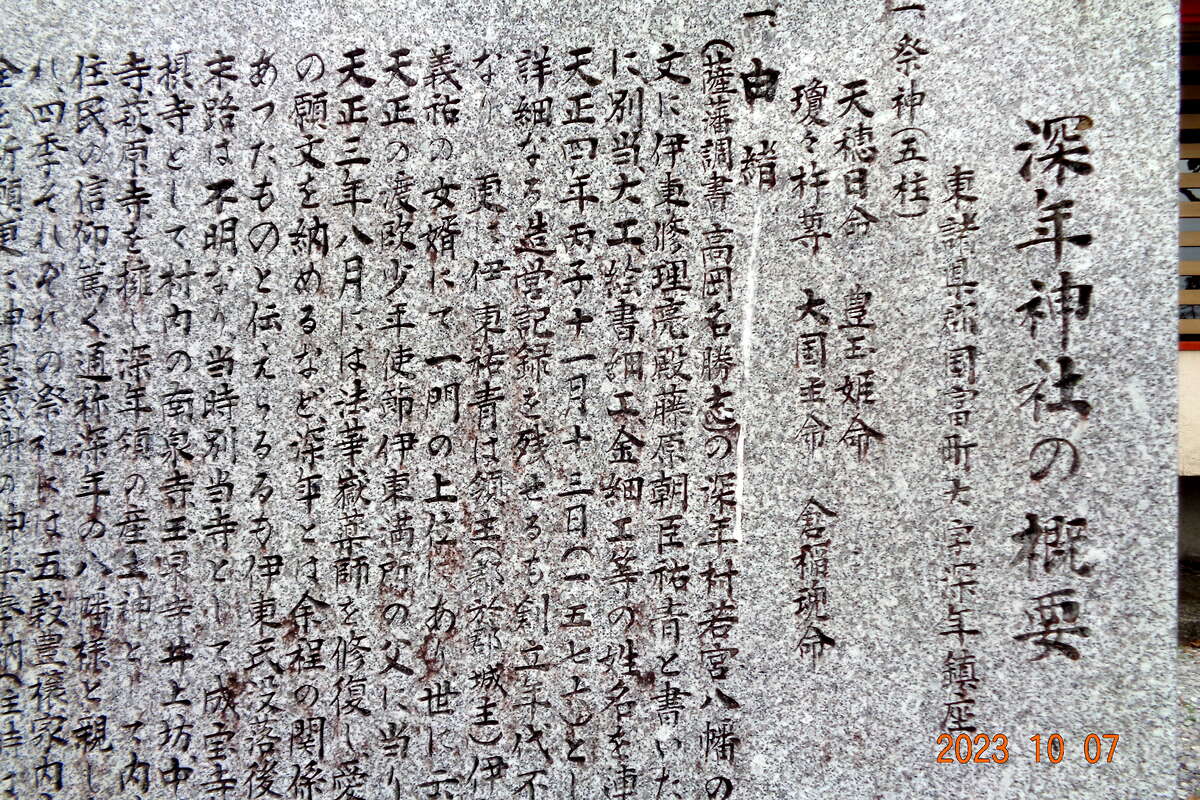 深年神社の概要
東諸県郡国富町大字深年鎮座
一、祭神(五柱)
天穂日命 豊玉姫命
瓊々杵尊 大国主命 倉稲魂命
一、由緒
(薩藩調書高岡名勝志の深年村若宮八幡の
文に伊東修理亮殿藤原朝臣祐青と書いた
に別当大工絵書細工金細工等の姓名を連
天正四年丙子十一月十三日(一五七七)とし
詳細なる造営記録を残せるも創立年代不
なり 更に伊東祐青は領主(都於郡城主)伊
義祐の女婿にて一門の上位にあり世に云
天正の渡欧少年使節伊東満所の父に当り
天正三年八月には法華嶽薬師を修復し愛
の願文を納めるなど深年とは余程の関係
あったものと伝えらるるも伊東氏没落後
末路は不明なり当時別当寺として成宝寺
摂寺として村内の南泉寺王泉寺井上坊中
寺萩原寺を擁し深年領の産土神として内
住民の信仰篤く通称深年の八幡様と親し
れ、四季それぞれの祭礼には五穀豊穣家内